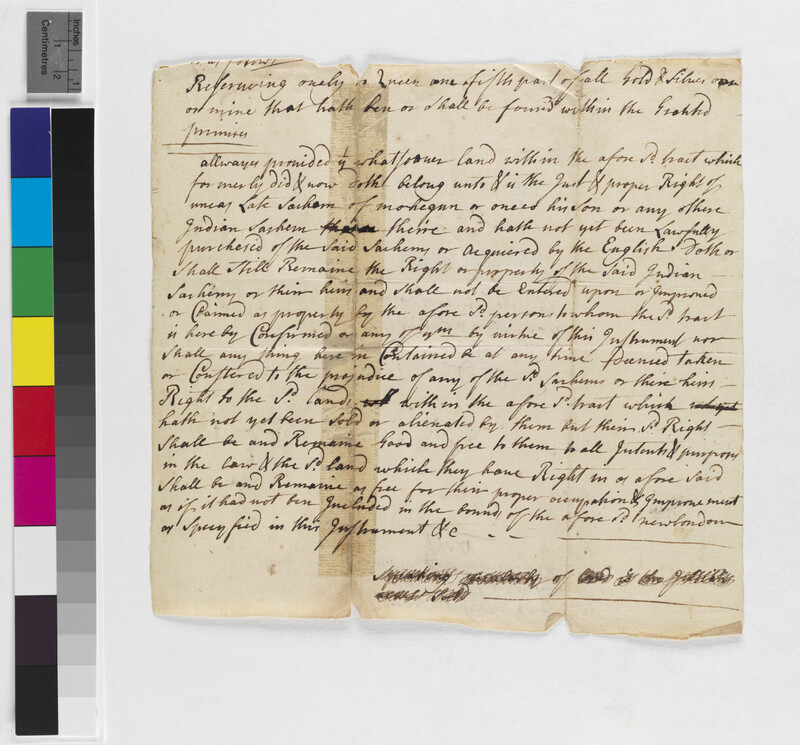 Inches
Centimetres
1
2
1
as follows
Reserving onely a Queen one fifth part of all Gold & Silver oar
or mine that hath ben or shall be found within the Granted
promises
allwayes provided yt whatsoever land within the afore sd tract which
formerly did & now doth belong unto & is the Just & proper Right of
uncas Late Sachem of mohegun or oneco his Son or any othere
Indian Sachem theire and hath not yet been Lawfully
purchased of the Said Sachems or acquiered by the English Doth or
Shall Still Remaine the Right or property of the Said Indian
Sachems or their heirs and Shall not be Entered upon or Improved
or Claimed as property by the afore sd persons to whom the sd tract
is hereby Confirmed or any of ym by virtue of this Instrument nor
Shall any thing here in Contained be at any time Deemed taken
or Constered to the prejudice of any of the sd Sachems or there heirs
Right to the sd lands within the afore sd tract which
hath not yet been Sold or alienated by them but their sd Right
Shall be and Remaine Good and free to them to all Intents & purposes
in the law & the sd land which they have Right in as afore Said
Shall be and Remaine as free for their proper occupation & Improvement
as if it had not ben Included in the bounds of the afore sd newlondon
as Specyfied in this Instrument &c
of